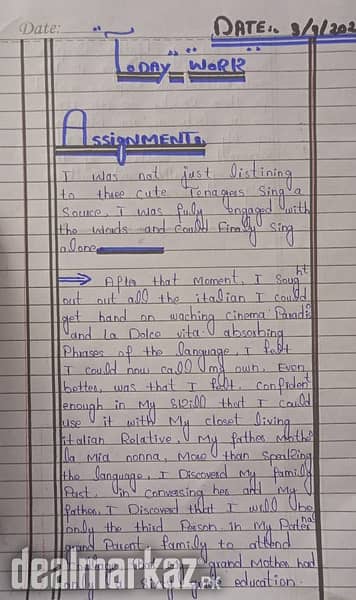 Date:
DATE:. 3/9/202
TODAY WORK
ASSIGNMENT:
I was not just listining
to three cute Tenagers Sing a
Source, I was fuly engaged with
the words and could finaly Sing
alone
After that Moment, I sought
out out all the italian I could
get hand on waching cinema Paradi
and La Dolce vita absorbing
Phrases of the language, I felt
I could now call My own. Even
better, was that I felt confident
enough in My Skill that I could
use it with My closet living
italian Relative, My father Mothe
la Mia nonna, More than Speaking
the language, I Discovered My family
Past, in conversing her and My
father, I Discoverd that I will be
only the third Person in My Pater
grand Parents family to attend
grand Mother had
education.
dealmarkaz.pk